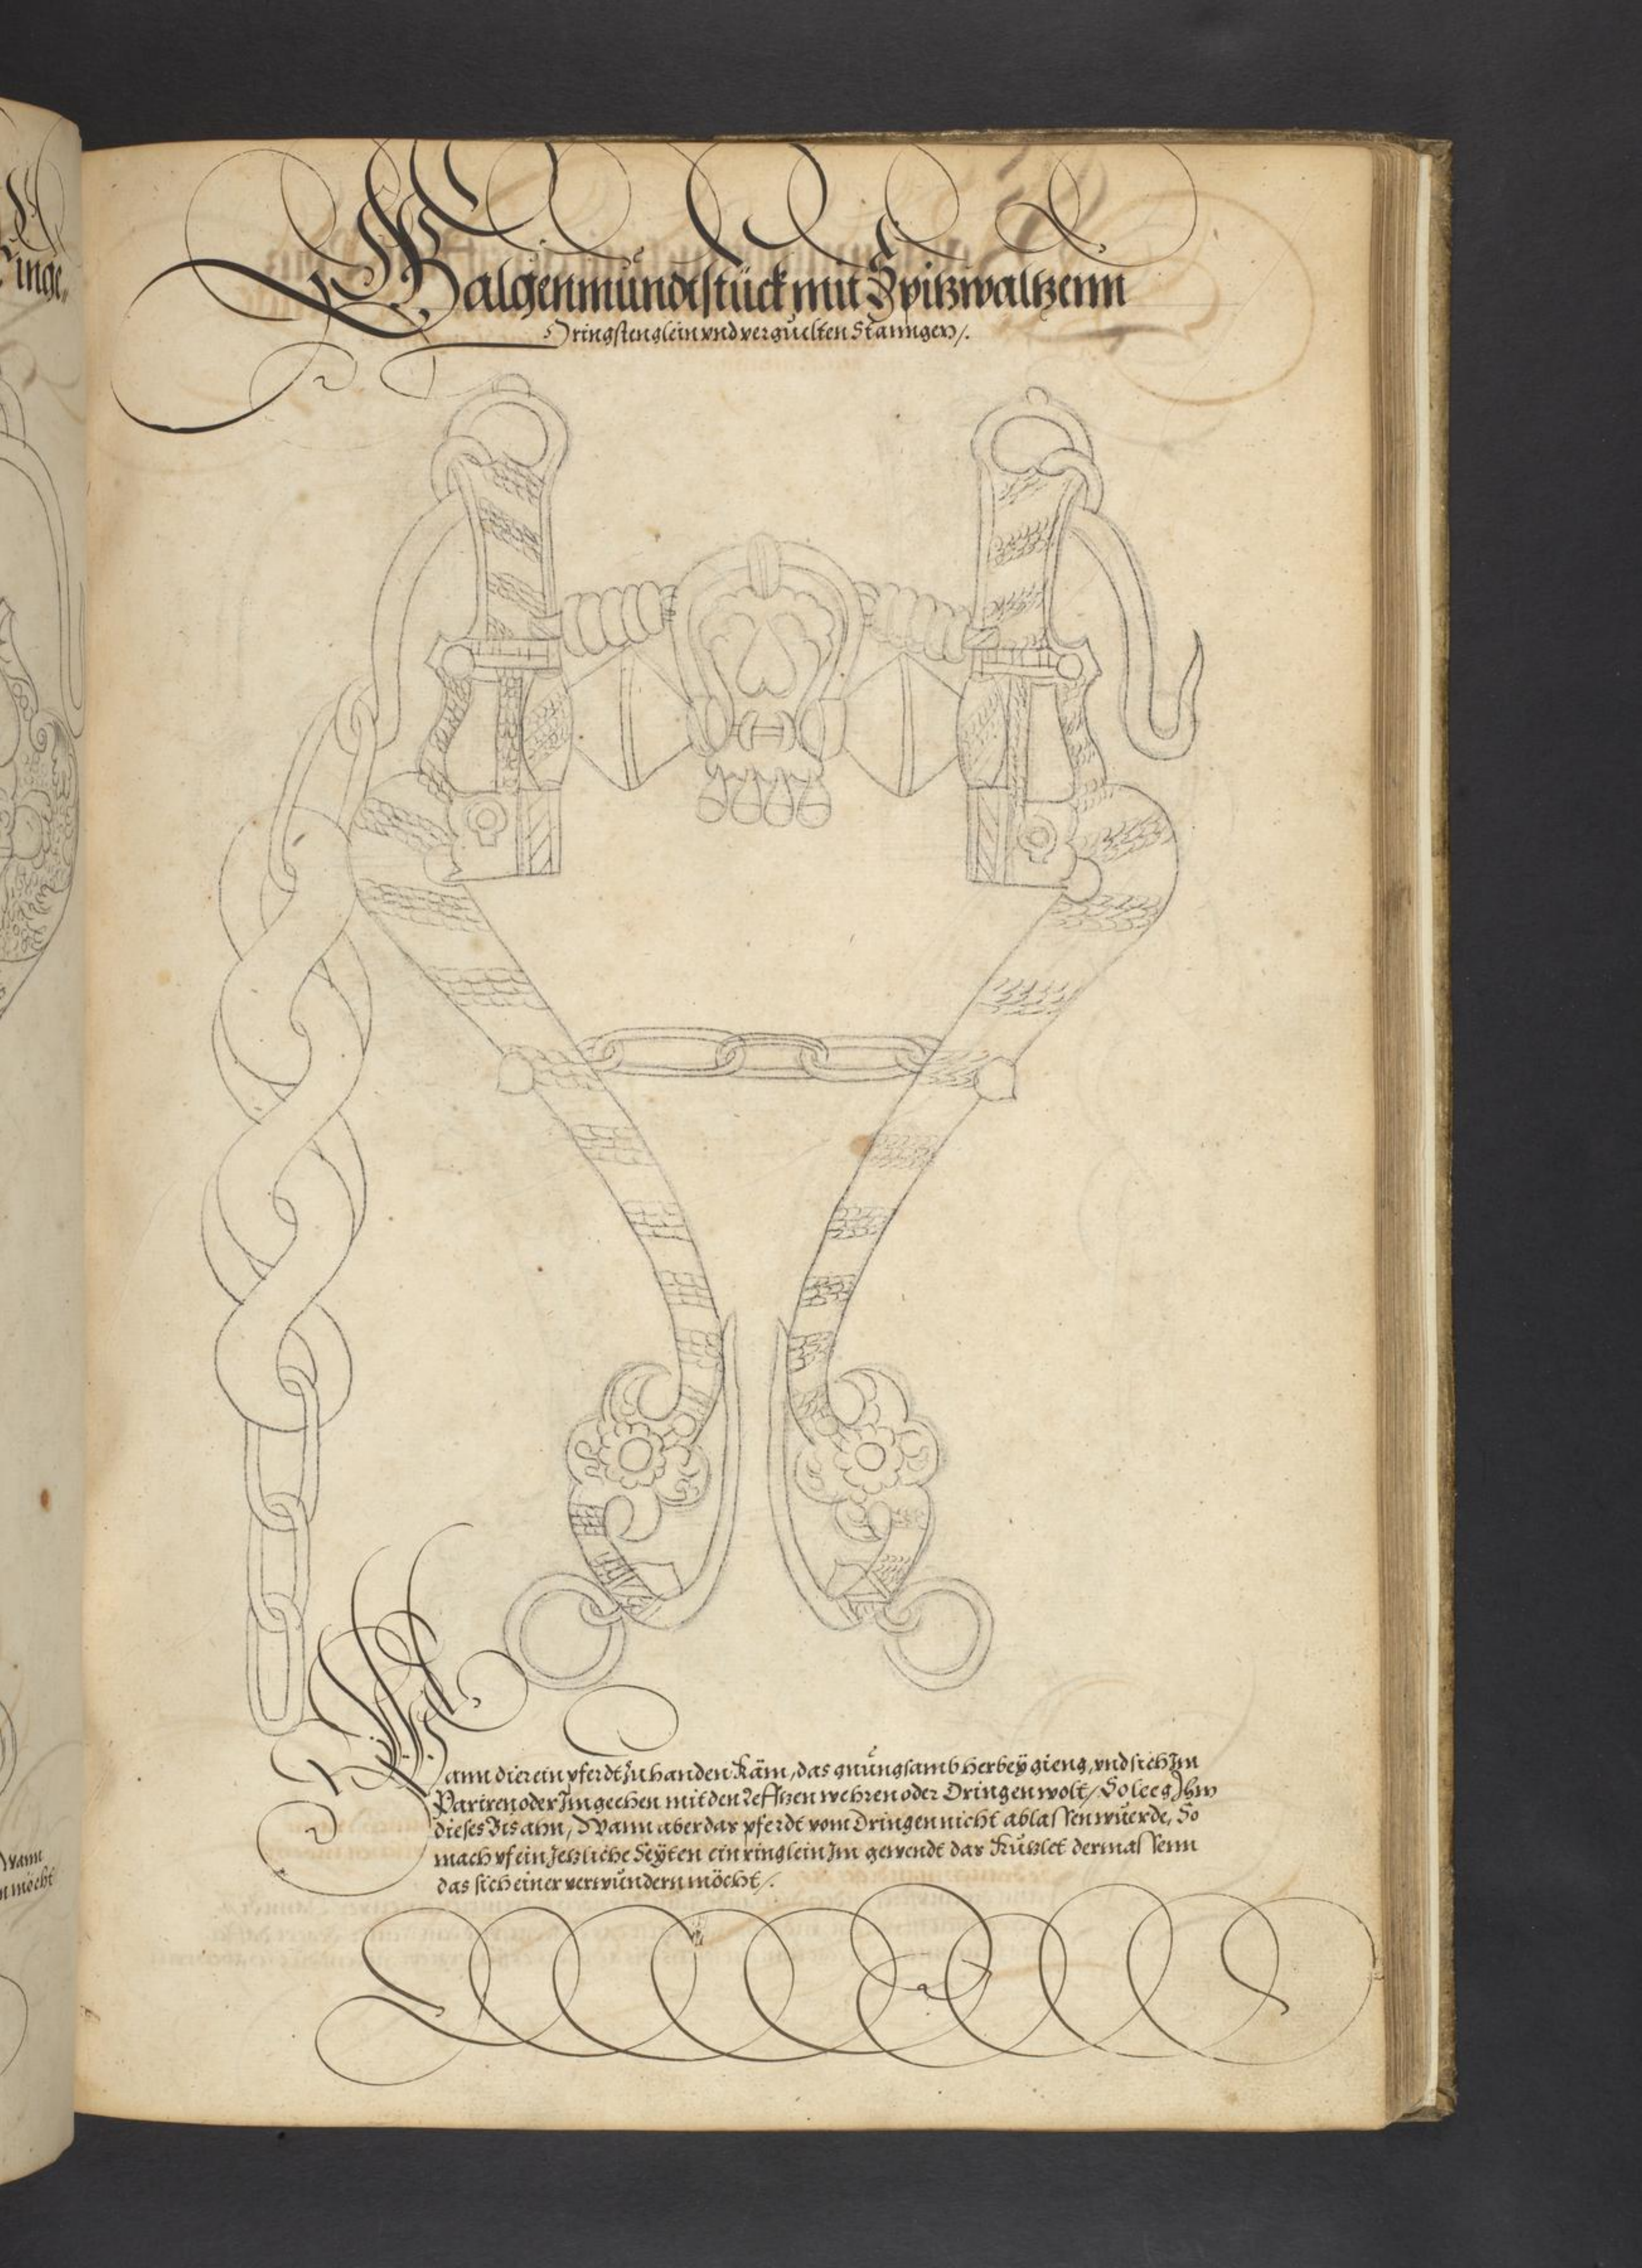 inge,,
Galgenmundtstück mit Spitzwaltzenn
Dringstenglein vnd verguelten Stanngen/.
Wann dier ein pferdt zu handen käm, das gnůngsamb herbeÿ gieng, vnd sich Im
Pariren oder Im geehen mit den Lefftzen wehren oder Dringen wolt/ So leeg Ihm
dieses Bis ahn, Wann aber das pferdt vom Dringen nicht ablassen wuerde, So
mach vf ein Jetzliche Seÿten ein ringlein Im gewendt das kützlet dermassenn
das sich einer verwůndern möcht/.
Wann
möcht